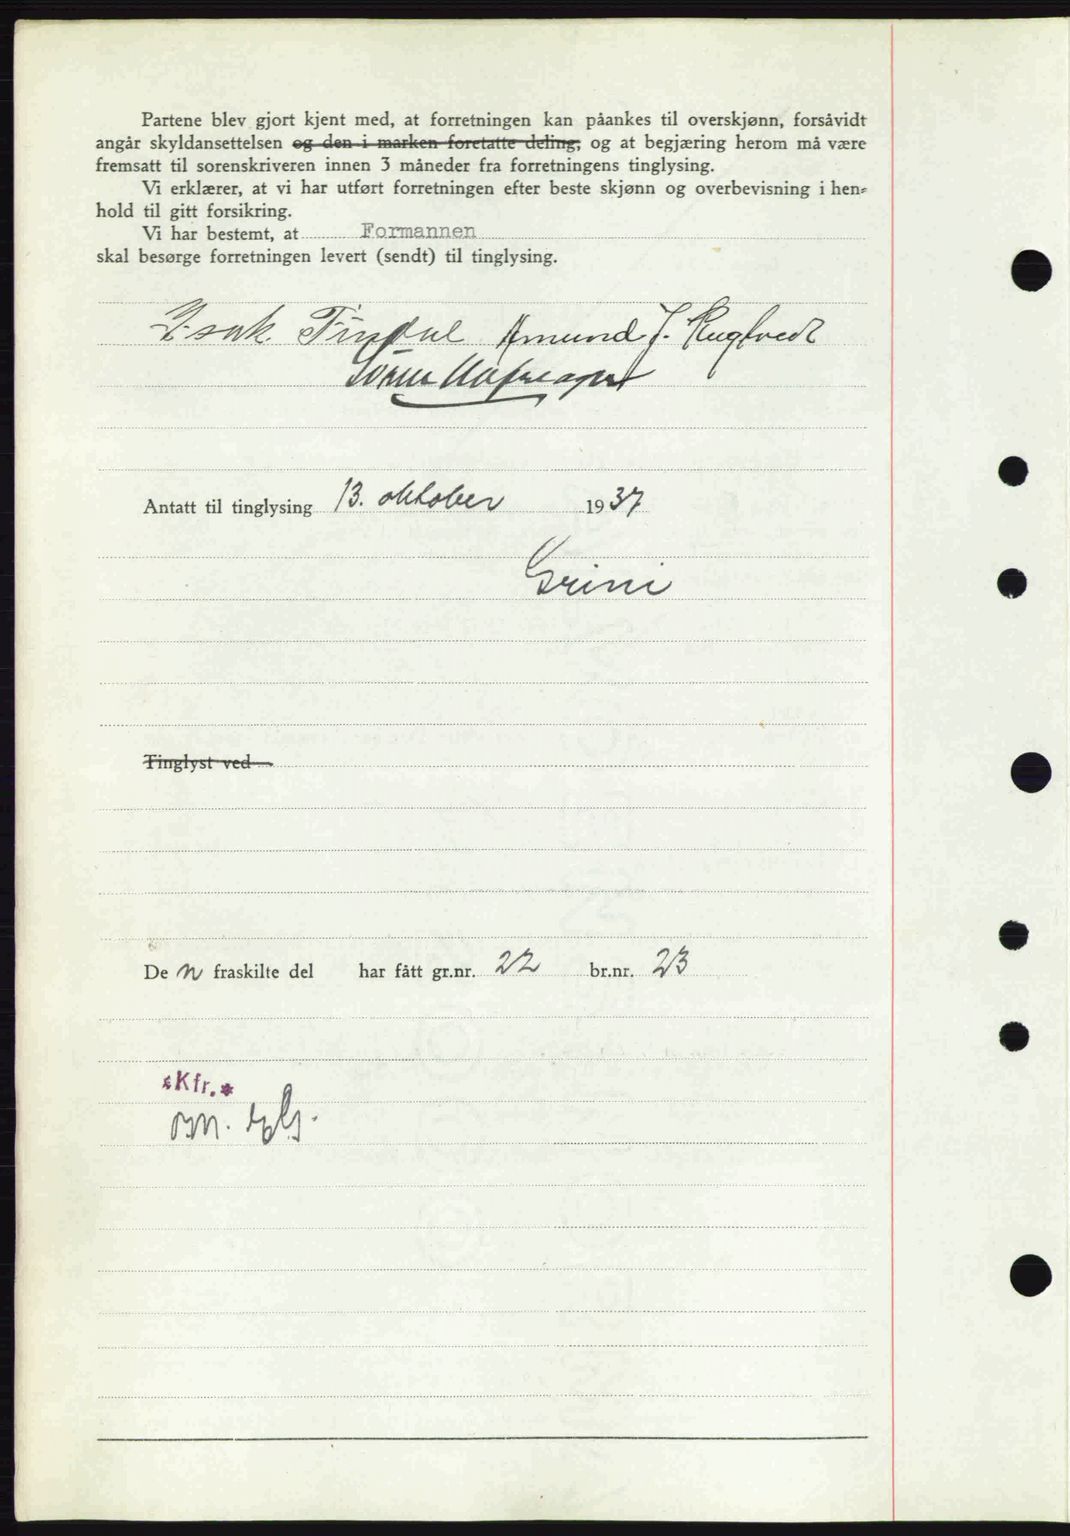 Partene blev gjort kjent med, at forretningen kan påankes til overskjønn, forsåvidt
angår skyldansettelsen og den i marken foretatte deling, og at begjæring herom må være
fremsatt til sorenskriveren innen 3 måneder fra forretningens tinglysing.
Vi erklærer, at vi har utført forretningen efter beste skjønn og overbevisning i hen=
hold til gitt forsikring.
Vi har bestemt, at Formannen
skal besørge forretningen levert (sendt) til tinglysing.
Isak Tindal Amund J.
Antatt til tinglysing 13. oktober 1937
Grini
Tinglyst ved
De n fraskilte del har fått gr.nr. 22 br.nr. 23
*Kfr.*